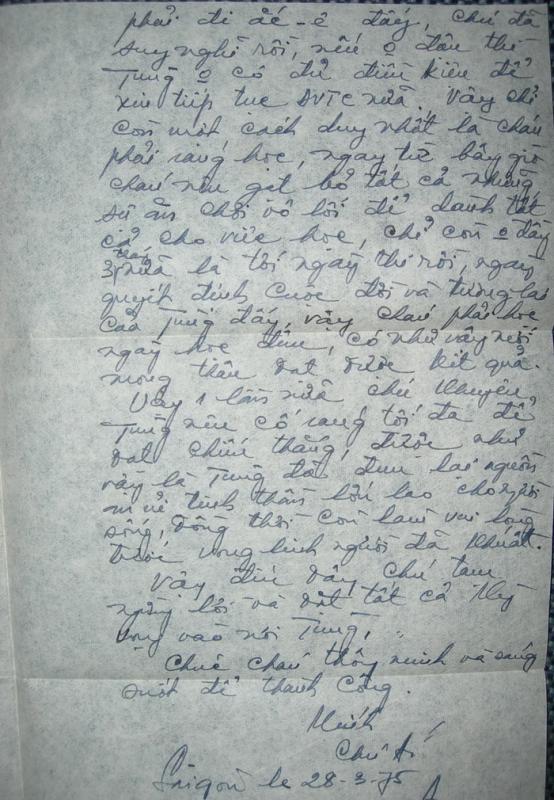 phải đi ắc-ê đấy, chú đã
suy nghĩ rồi, nếu o đậu thì
Tùng o có đủ điều kiện để
xin tiếp tục DVTC nữa. Vậy chỉ
còn một cách duy nhất là cháu
phải ráng học, ngay từ bây giờ
cháu nên gạt bỏ tất cả những
sự ăn chơi vô lối để dành tất
cả cho việc học, chỉ còn o đầy
3 tháng nữa là tới ngày thi rồi, ngày
quyết định cuộc đời và tương lai
của Tùng đấy, vậy cháu phải học
ngày học đêm, có như vậy mới
mong thâu đạt được kết quả.
Vậy 1 lần nữa chú khuyên
Tùng nên cố ráng tối đa để
đạt chiến thắng, được như
vậy là Tùng đã đem lại nguồn
an ủi tinh thần lớn lao cho người
sống, đồng thời còn làm vui lòng
vong linh người đã khuất.
Vậy đến đây, chú tạm
ngừng lời và đặt tất cả hy
vọng vào nơi Tùng,
Chúc cháu thông minh và sáng
suốt để thành công.
Chú
Saigon le 28-3-75